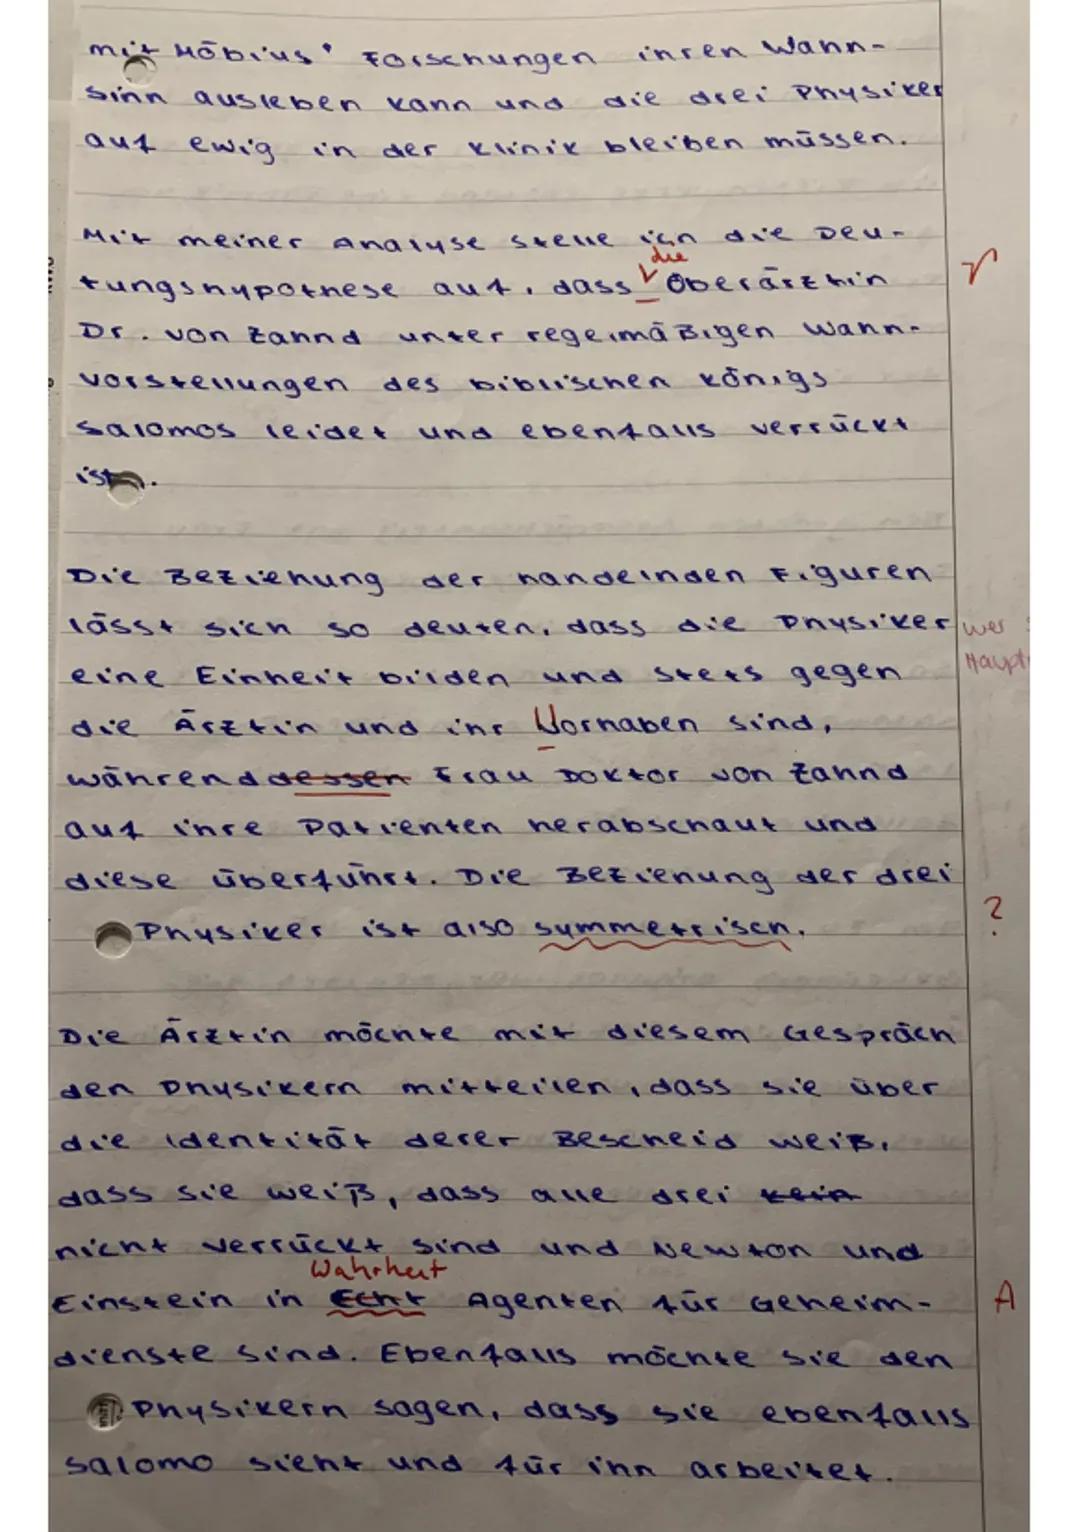 mit Möbius' Forschungen ihren Wahn-
sinn ausleben kann und die drei Physiker
auf ewig in der Klinik bleiben müssen.
Mit meiner Analyse stelle ich die Deu-
die
tungshypothese auf, dass Oberärztin
r
Dr. von Zahnd unter regelmäßigen Wahn-
vorstellungen des biblischen Königs
Salomos leidet und ebenfalls verrückt
ist.
Die Beziehung der handelnden Figuren
lässt sich so deuten, dass die Physiker
wer
eine Einheit bilden und stets gegen
Haupt
die Ärztin und ihr Vorhaben sind,
währenddessen Frau Doktor von Zahnd
auf ihre Patienten herabschaut und
diese überführt. Die Beziehung der drei
Physiker ist also symmetrisch.
?
Die Ärztin möchte mit diesem Gespräch
den Physikern mitteilen, dass sie über
die Identität derer Bescheid weiß,
dass sie weiß, dass alle drei kein
nicht verrückt sind und Newton und
Wahrheit
Einstein in Echt Agenten für Geheim-
A
dienste sind. Ebenfalls möchte sie den
Physikern sagen, dass sie ebenfalls
Salomo sieht und für ihn arbeitet.